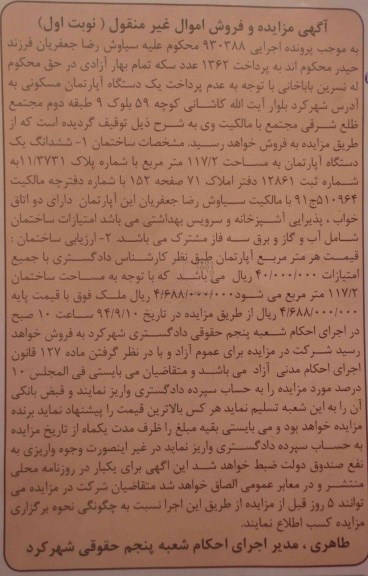 آگهی مزایده و فروش اموال غیر منقول ( نوبت اول)
به موجب پرونده اجرایی ۹۳۰۳۸۸ محکوم علیه سیاوش رضا جعفریان فرزند
حیدر محکوم اند به پرداخت ۱۳۶۲ عدد سکه تمام بهار آزادی در حق محکوم
له نسرین باباخانی با توجه به عدم پرداخت یک دستگاه آپارتمان مسکونی به
آدرس شهرکرد بلوار آیت الله کاشانی کوچه ۵۹ بلوک ۹ طبقه دوم مجتمع
ظلع شرقی مجتمع با مالکیت وی به شرح ذیل توقیف گردیده است که از
طریق مزایده به فروش خواهد رسید. مشخصات ساختمان ۱- ششدانگ یک
دستگاه آپارتمان به مساحت ۱۱۷/۲ متر مربع با شماره پلاک ۱۱/۳۷۳۱ به
شماره ثبت ۱۲۸۶۱ دفتر املاک ۷۱ صفحه ۱۵۲ با شماره دفترچه مالکیت
۵۱۰۹۶۴ج۹۱ با مالکیت سیاوش رضا جعفریان این آپارتمان دارای دو اتاق
خواب ، پذیرایی آشپزخانه و سرویس بهداشتی می باشد امتیازات ساختمان
شامل آب و گاز و برق سه فاز مشترک می باشد. ۲- ارزیابی ساختمان :
قیمت هر متر مربع آپارتمان طبق نظر کارشناس دادگستری با جمیع
امتیازات ۴۰/۰۰۰/۰۰۰ ریال می باشد که با توجه به مساحت ساختمان
۱۱۷/۲ متر مربع می شود ۴/۶۸۸/۰۰۰/۰۰۰ ریال ملک فوق با قیمت پایه
۴/۶۸۸/۰۰۰/۰۰۰ ریال از طریق مزایده در تاریخ ۹۴/۹/۱۰ ساعت ۱۰ صبح
در اجرای احکام شعبه پنجم حقوقی دادگستری شهرکرد به فروش خواهد
رسید شرکت در مزایده برای عموم آزاد و با در نظر گرفتن ماده ۱۲۷ قانون
اجرای احکام مدنی آزاد می باشد و متقاضیان می بایستی فی المجلس ۱۰
درصد مورد مزایده را به حساب سپرده دادگستری واریز نمایند و قبض بانکی
آن را به این شعبه تسلیم نماید هر کس بالاترین قیمت را پیشنهاد نماید برنده
مزایده خواهد بود و می بایستی بقیه مبلغ را ظرف مدت یکماه از تاریخ مزایده
به حساب سپرده دادگستری واریز نماید در غیر اینصورت وجوه واریزی به
نفع صندوق دولت ضبط خواهد شد این اگهی برای یکبار در روزنامه محلی
منتشر و در معابر عمومی الصاق خواهد شد متقاضیان شرکت در مزایده می
توانند ۵ روز قبل از مزایده از طریق این اجرا نسبت به چگونگی نحوه برگزاری
مزایده کسب اطلاع نمایند.
طاهری ، مدیر اجرای احکام شعبه پنجم حقوقی شهرکرد